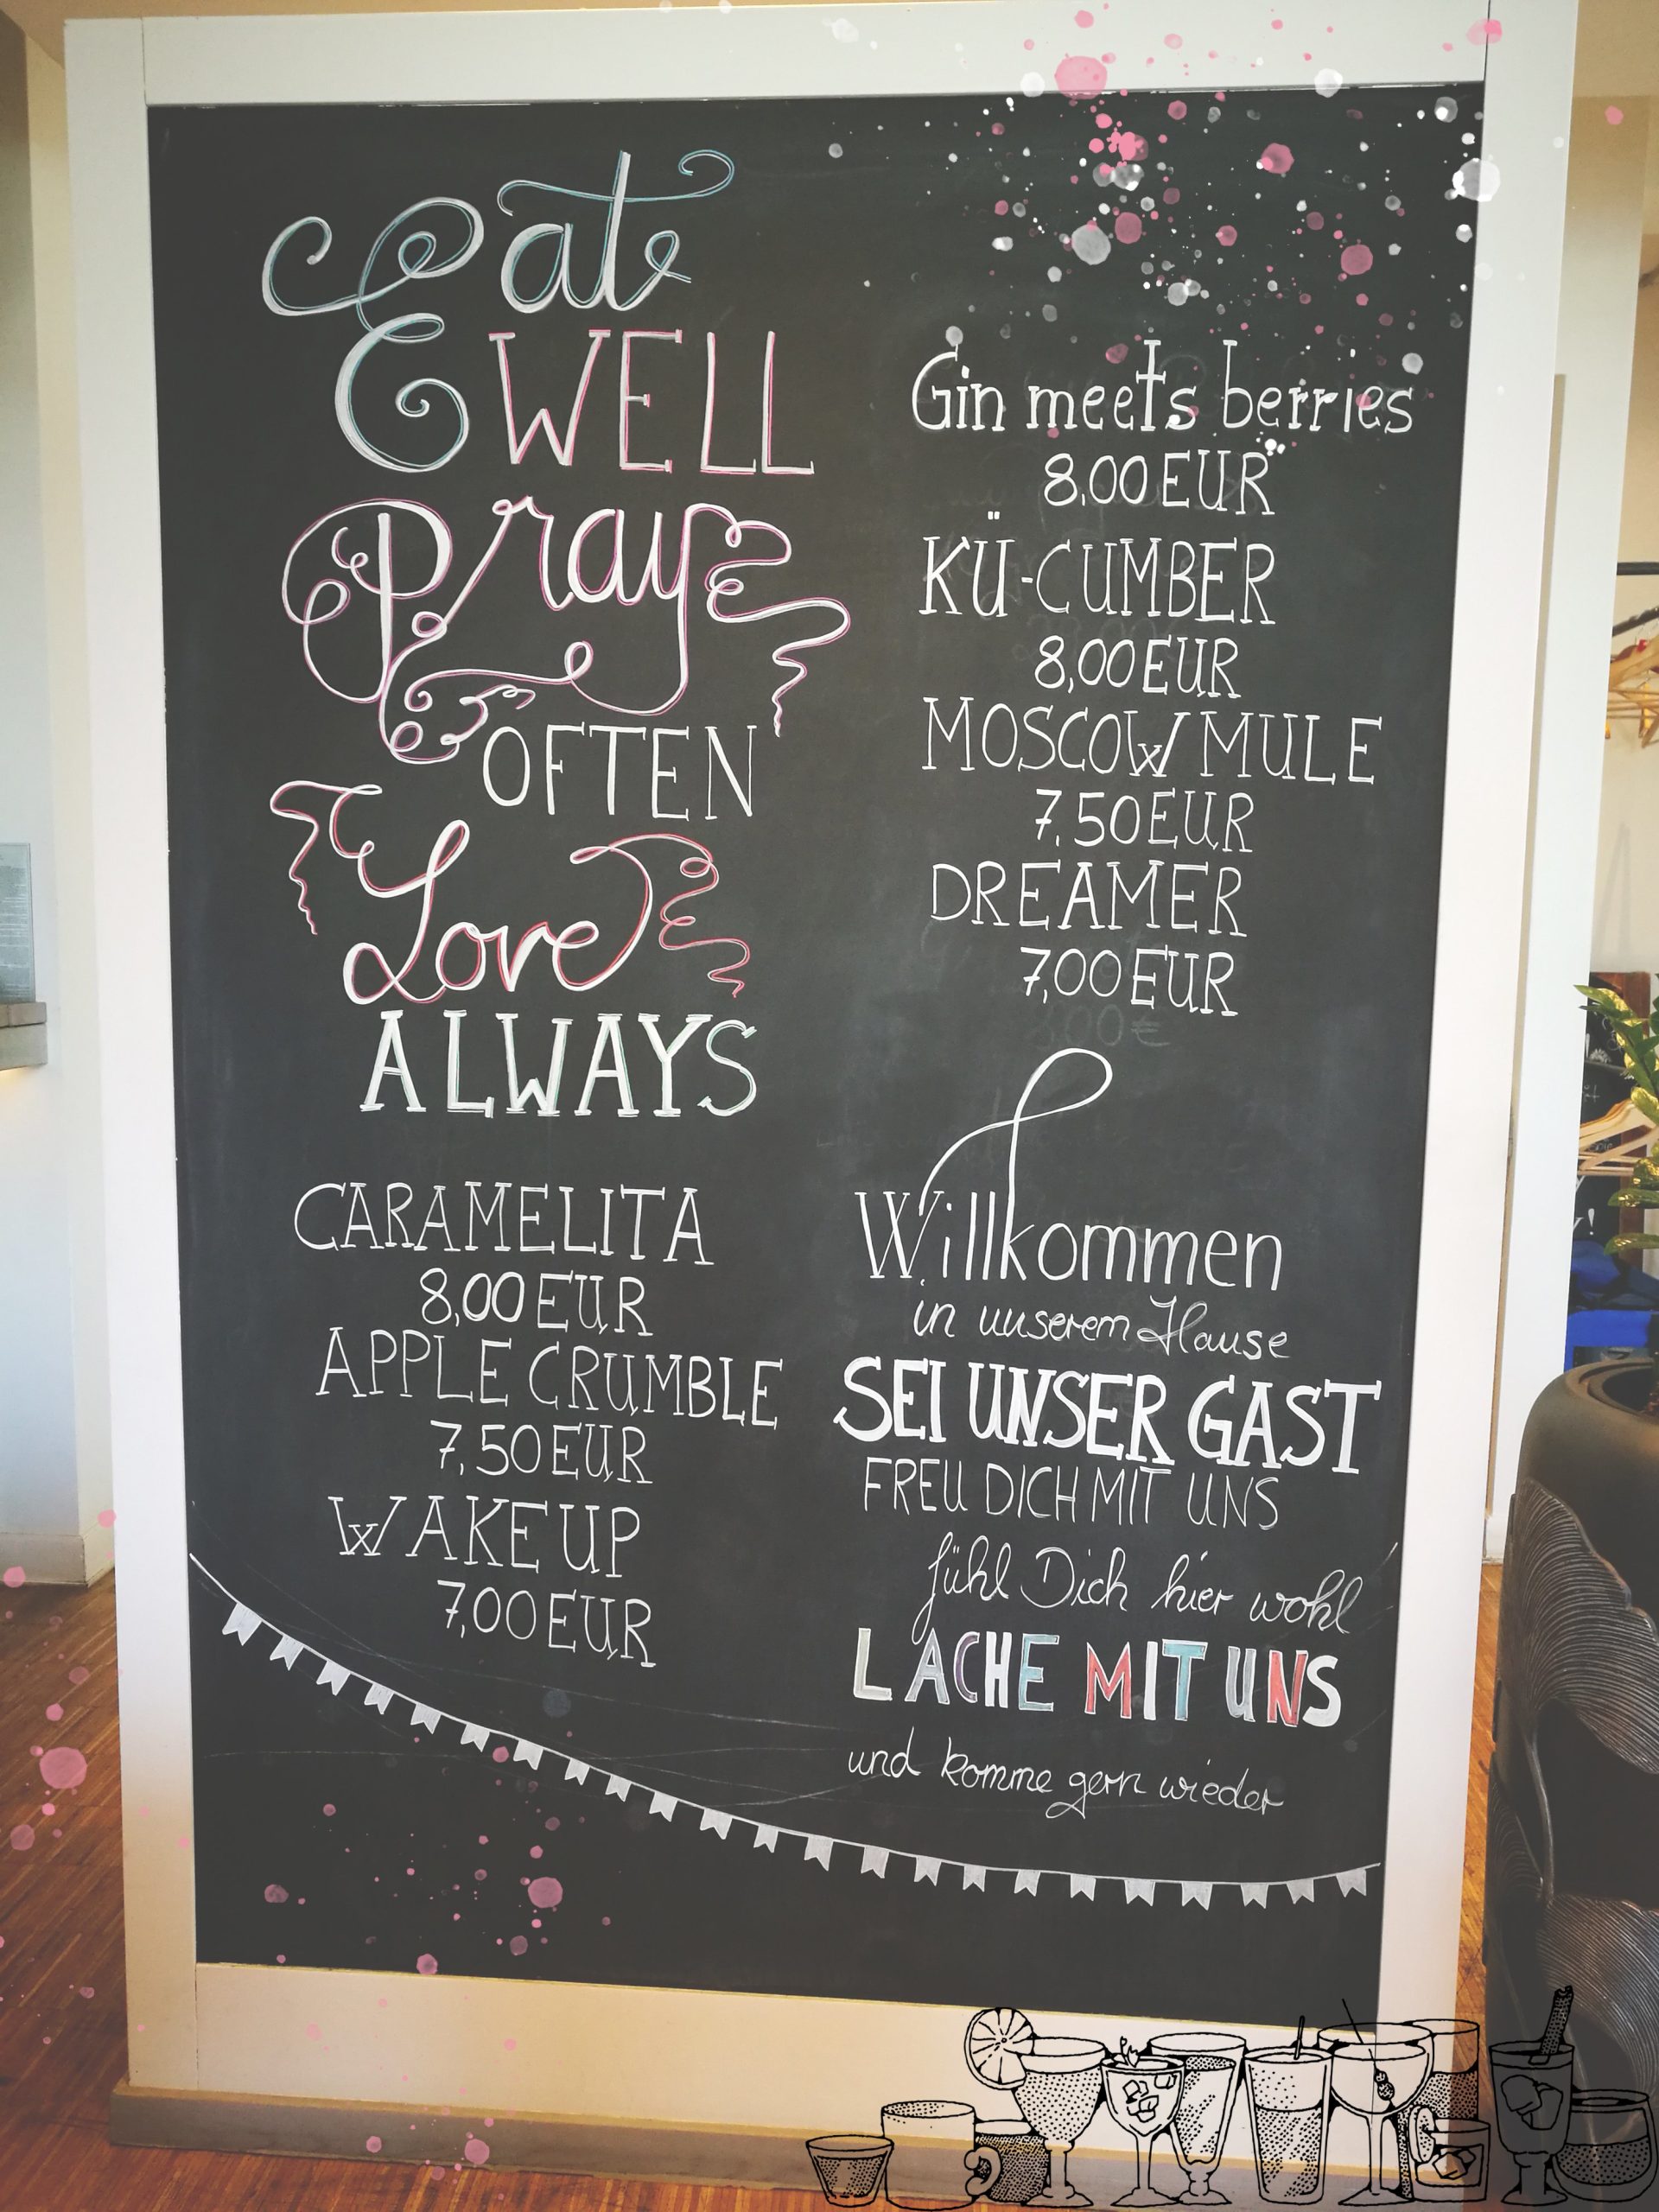 Eat
WELL
Pray
OFTEN
Love
ALWAYS
CARAMELITA
8,00 EUR
APPLE CRUMBLE
7,50 EUR
WAKE UP
7,00 EUR
Gin meets berries
8,00 EUR
KÜ-CUMBER
8,00 EUR
MOSCOW MULE
7,50 EUR
DREAMER
7,00 EUR
Willkommen
in unserem Hause
SEI UNSER GAST
FREU DICH MIT UNS
fühl Dich hier wohl
LACHE MIT UNS
und komme gern wieder